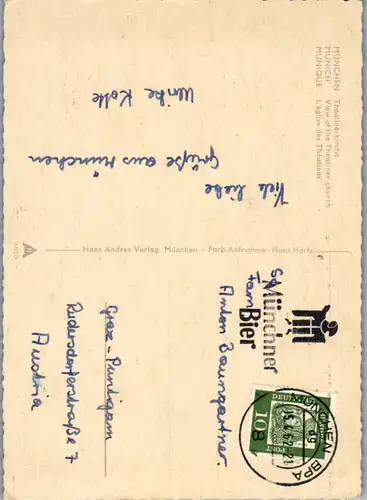 MÜNCHEN Theatinerkirche
MUNICH View of the Theatiner church
MUNIQUE L'église des Théatines
Viele liebe
Grüße aus München
Ulrike Kolle
Hans Andres Verlag, München - Farb-Aufnahme: Hans Hartz
Münchner
Bier
MÜNCHEN BPA
8
DEUTSCHE
POST
10
Fam
Anton Baumgartner
Graz-Puntigam
Rudersdorferstraße 7
Austria